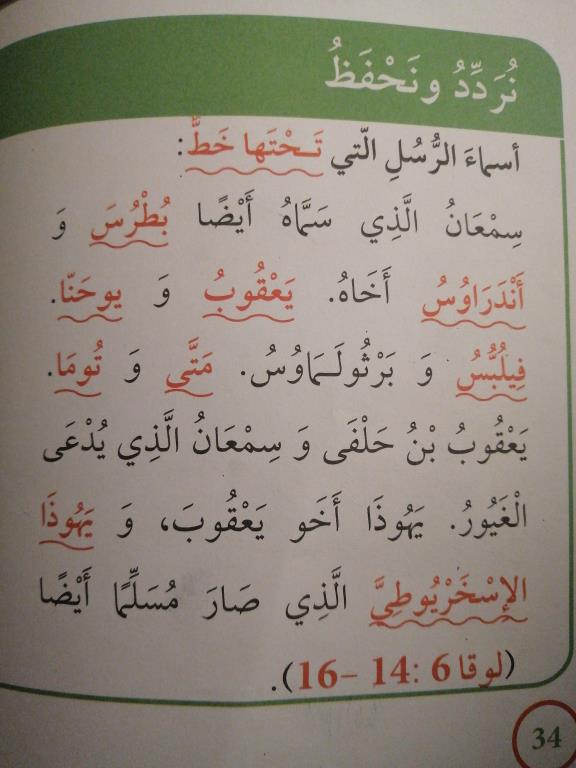 نُرَدِّدُ ونَحْفَظُ
أسماءَ الرُّسُلِ الّتي تَحْتَها خَطٌّ:
سِمْعَانُ الَّذِي سَمَّاهُ أَيْضًا بُطْرُسَ وَ
أَنْدَرَاوُسُ أَخَاهُ. يَعْقُوبُ وَ يوحَنّا.
فِيلُبُّسُ وَ بَرْثُولَمَاوُسُ. مَتَّى وَ تُومَا.
يَعْقُوبُ بْنُ حَلْفَى وَ سِمْعَانُ الَّذِي يُدْعَى
الْغَيُورُ. يَهُوذَا أَخَو يَعْقُوبَ، وَ يَهُوذَا
الإِسْخَرْيُوطِيَّ الَّذِي صَارَ مُسَلِّمًا أَيْضًا
(لوقا 6: 14 – 16).
34